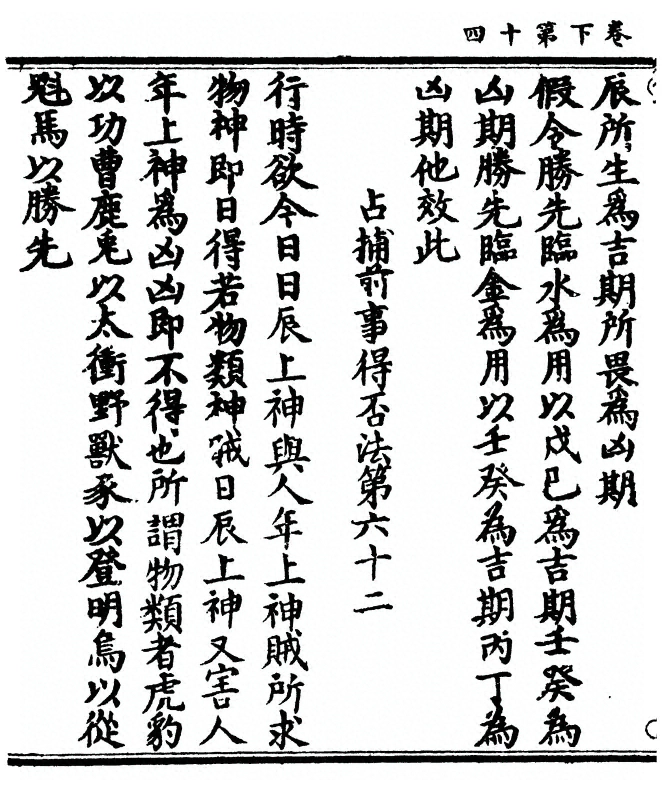 卷下第十四
辰所生爲吉期所畏爲凶期
假令勝先臨水爲用以戊巳爲吉期壬癸為
凶期勝先臨金爲用以壬癸為吉期丙丁為
凶期他效此
占捕前事得否法第六十二
行時欲令日日辰上神與人年上神賊所求
物神即日得若物類神賊日辰上神又害人
年上神爲凶凶即不得也所謂物類者虎豹
以功曹鹿兎以太衝野獸豕以登明烏以從
魁馬以勝先